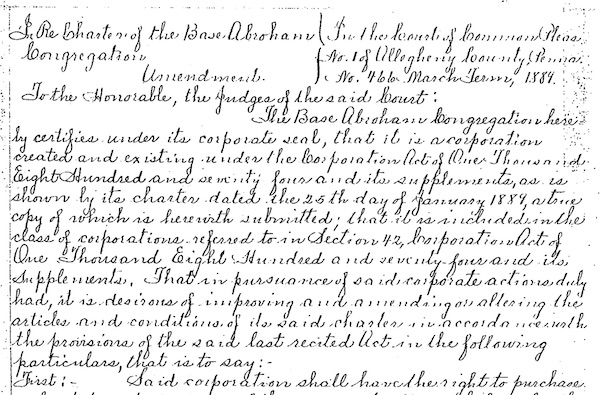 In Re Charter of the Base Abraham
Congregation
Amendment.
In the Court of Common Pleas
No. 1 of Allegheny County, Penna
No. 466 March Term, 1889.
To the Honorable, the Judges of the said Court:
The Base Abraham Congregation here
by certifies under its corporate seal, that it is a corporation
created and existing under the Corporation Act of One Thousand
Eight Hundred and seventy four and its supplements, as is
shown by its charter dated the 25th day of January 1889, a true
copy of which is herewith submitted; that it is included in the
class of corporations referred to in Section 42, Corporation Act of
One Thousand Eight Hundred and seventy four and its
supplements. That in pursuance of said corporate actions duly
had, it is desirous of improving and amending or altering the
articles and conditions of its said charter in accordance with
the provisions of the said last recited Act in the following
particulars, that is to say:-
First:- Said corporation shall have the right to purchase